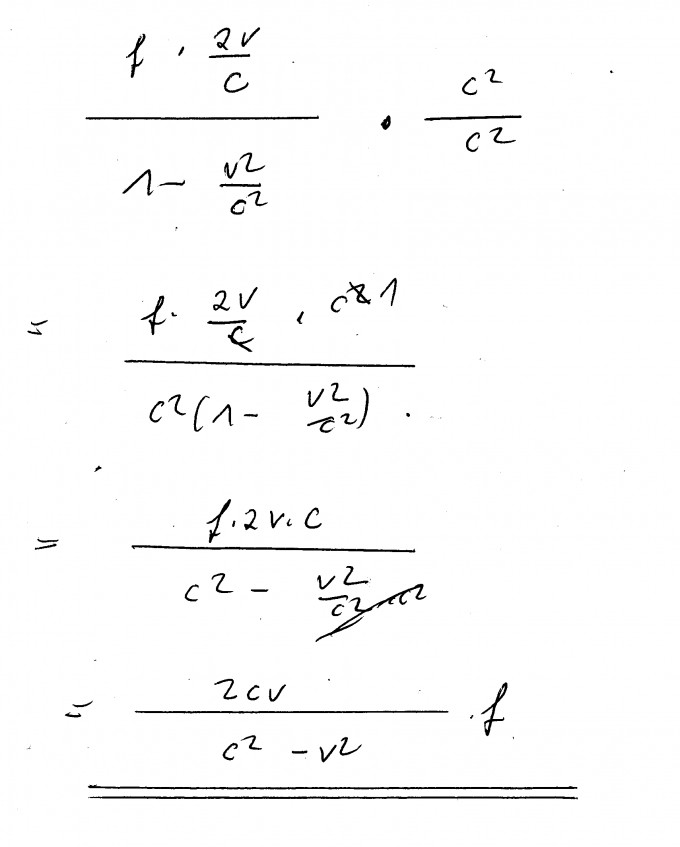 f · 2v/c / 1 - v²/c² · c²/c²
= f · 2v/c · c² 1 / c²(1 - v²/c²)
= f · 2v · c / c² - v²/c² · c²
= 2cv / c² - v² · f